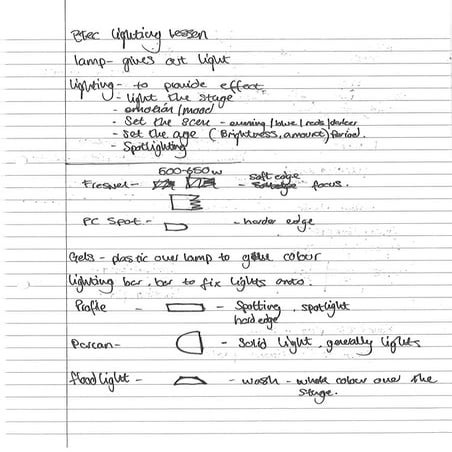 BTec lighting lesson
lamp - gives out light
lighting - to provide effect
- light the stage
- emotion/mood
- Set the scene - evening/blue/reds/darker
- Set the age (Brightness, amount) Period.
- Spotlighting
500-650w
Fresnel - soft edge
- focus.
PC Spot - - harder edge
Gels - plastic over lamp to give colour
lighting bar, bar to fix lights onto.
Profile - - Spotting, spotlight
hard edge
Parcan - - Solid light, generally lights
floodlight - - wash - whole colour over the
stage.